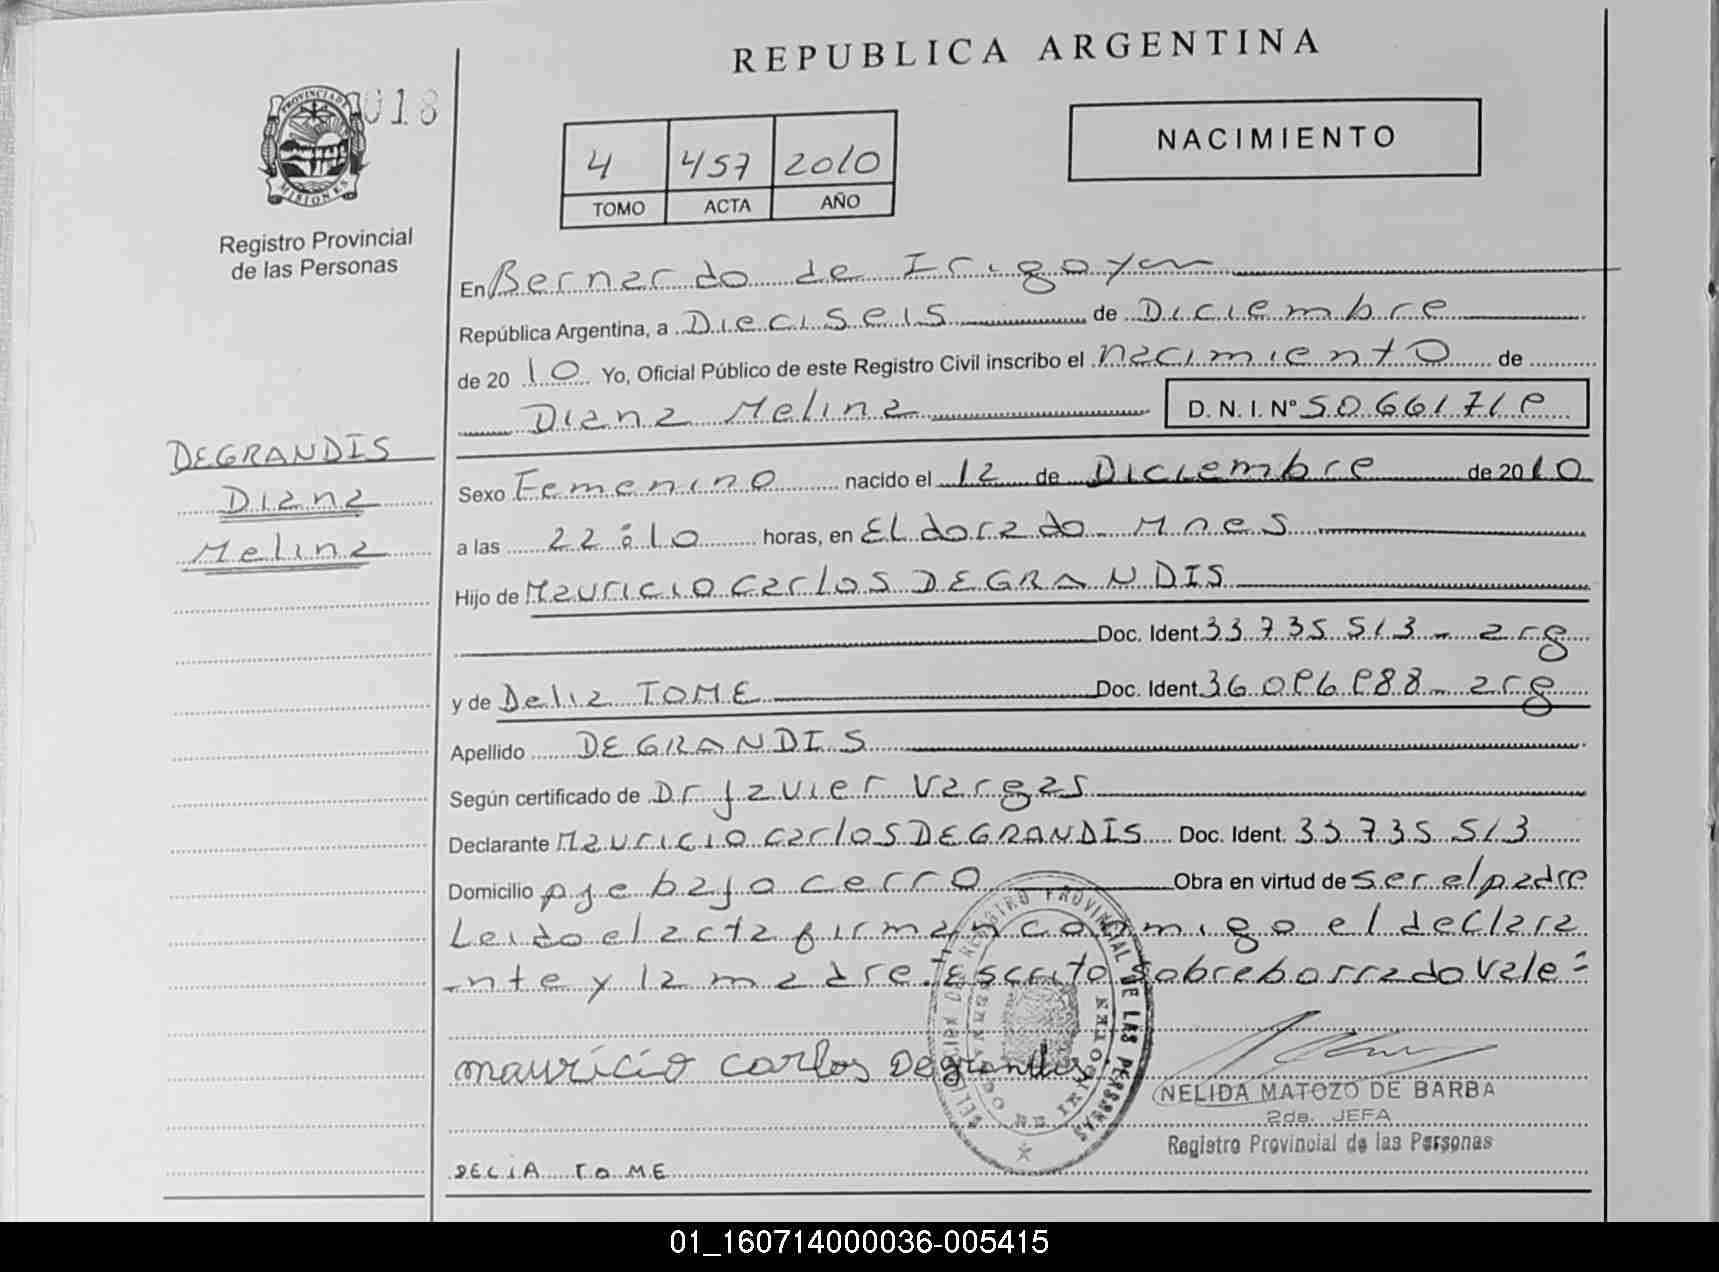 REPUBLICA ARGENTINA
018
PROVINCIA DE
MISIONES
Registro Provincial
de las Personas
4 457 2010
TOMO ACTA AÑO
NACIMIENTO
En Bernardo de Irigoyen
República Argentina, a Dieciseis de Diciembre
de 2010 Yo, Oficial Público de este Registro Civil inscribo el nacimiento de
Diana Melina D. N. I. Nº
DEGRANDIS
Diana
Melina
Sexo Femenino nacido el 12 de Diciembre de 2010
a las 22:10 horas, en Eldorado Mnes
Hijo de Mauricio Carlos DEGRANDIS
Doc. Ident 33.735.513 - arg
y de Delia TOME Doc. Ident - arg
Apellido DEGRANDIS
Según certificado de Dr Javier Vargas
Declarante Mauricio Carlos DEGRANDIS Doc. Ident. 33.735.513
Domicilio pje bajo cerro Obra en virtud de ser el padre
Leido el acta firman conmigo el declara
nte y la madre. Escrito sobreborrado vale =
mauricio carlos Degrandis
DELEGACION DEL REGISTRO PROVINCIAL DE LAS PERSONAS
BERNARDO DE IRIGOYEN
NELIDA MATOZO DE BARBA
2da. JEFA
Registro Provincial de las Personas
DELIA TOME
01_160714000036-005415